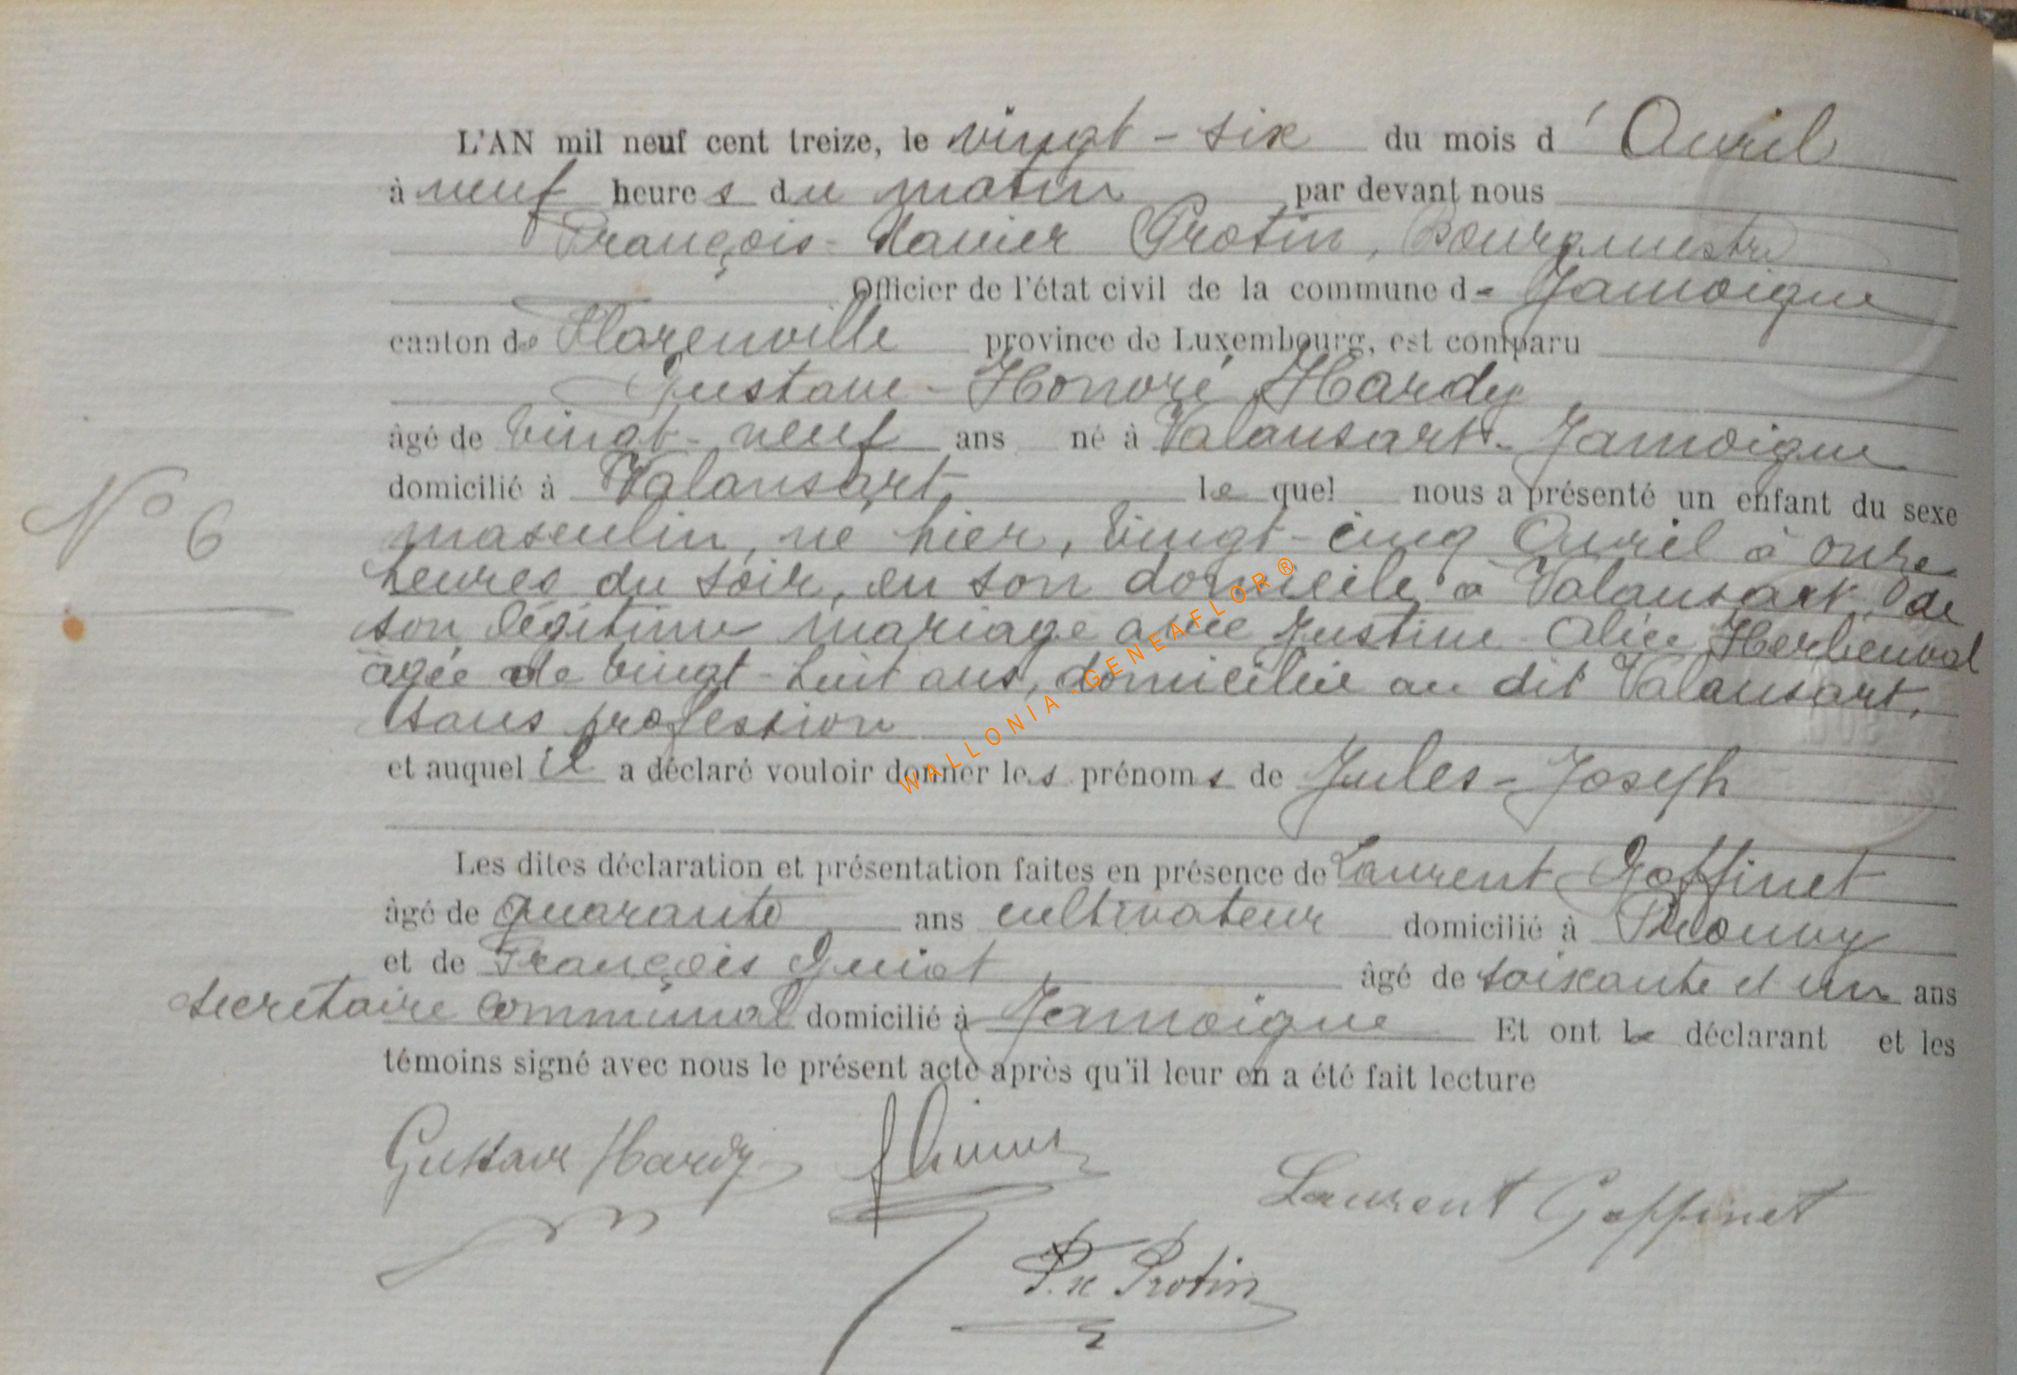 L'AN mil neuf cent treize, le vingt-six du mois d'Avril
à neuf heures du matin par devant nous
François-Xavier Protin, Bourgmestre
Officier de l'état civil de la commune de Jamoigne
canton de Florenville province de Luxembourg, est comparu
Gustave-Honoré Hardy
âgé de vingt-neuf ans né à Valansart-Jamoigne
domicilié à Valansart, lequel nous a présenté un enfant du sexe
N° 6
masculin, né hier, vingt-cinq Avril à onze
heures du soir, en son domicile à Valansart, de
son légitime mariage avec Justine Alice Herbeuval
âgée de vingt-huit ans, domiciliée au dit Valansart,
sans profession
et auquel il a déclaré vouloir donner les prénoms de Jules-Joseph
WALLONIA-GENEAFLOR®
Les dites déclaration et présentation faites en présence de Laurent Goffinet
âgé de quarante ans cultivateur domicilié à
et de François Guiot, âgé de soixante et un ans
secrétaire communal domicilié à Jamoigne Et ont le déclarant et les
témoins signé avec nous le présent acte après qu'il leur en a été fait lecture
Gustave Hardy
Laurent Goffinet
F. X Protin